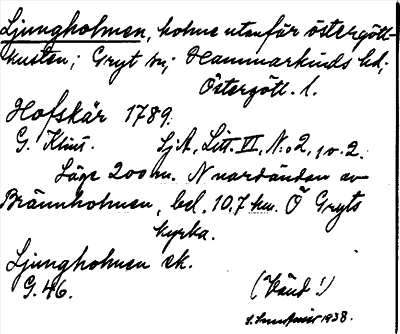 Ljungholmen, holme utanför östergött-
kusten; Gryt sn; Hammarkinds hd;
Östergött. l.
Hofskär 1789.
G. Klint. Sj.A, Litt. VI, N:o 2, 1 v. 2.
Läge 200 m. N nordändan av
Brännholmen, bel. 10.7 km. Ö Gryts
kyrka.
Ljungholmen ek.
G. 46. (Vänd!)
1938.